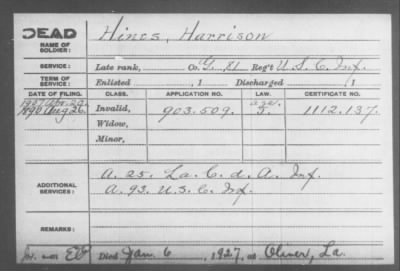 DEAD Hines, Harrison
NAME OF SOLDIER:
SERVICE: Late rank, Co. G. 81 Reg't U. S. C. Inf.
TERM OF SERVICE: Enlisted , 1 Discharged , 1
DATE OF FILING. CLASS. APPLICATION NO. LAW. CERTIFICATE NO.
1907 Apr. 29. age.
1890 Aug 26. Invalid, 903.509. 5. 1112.137.
Widow,
Minor,
ADDITIONAL SERVICES: A. 25. La. C. d. A. Inf.
A. 93. U. S. C. Inf.
REMARKS:
Died Jan. 6, 1927, at Oliver, La.